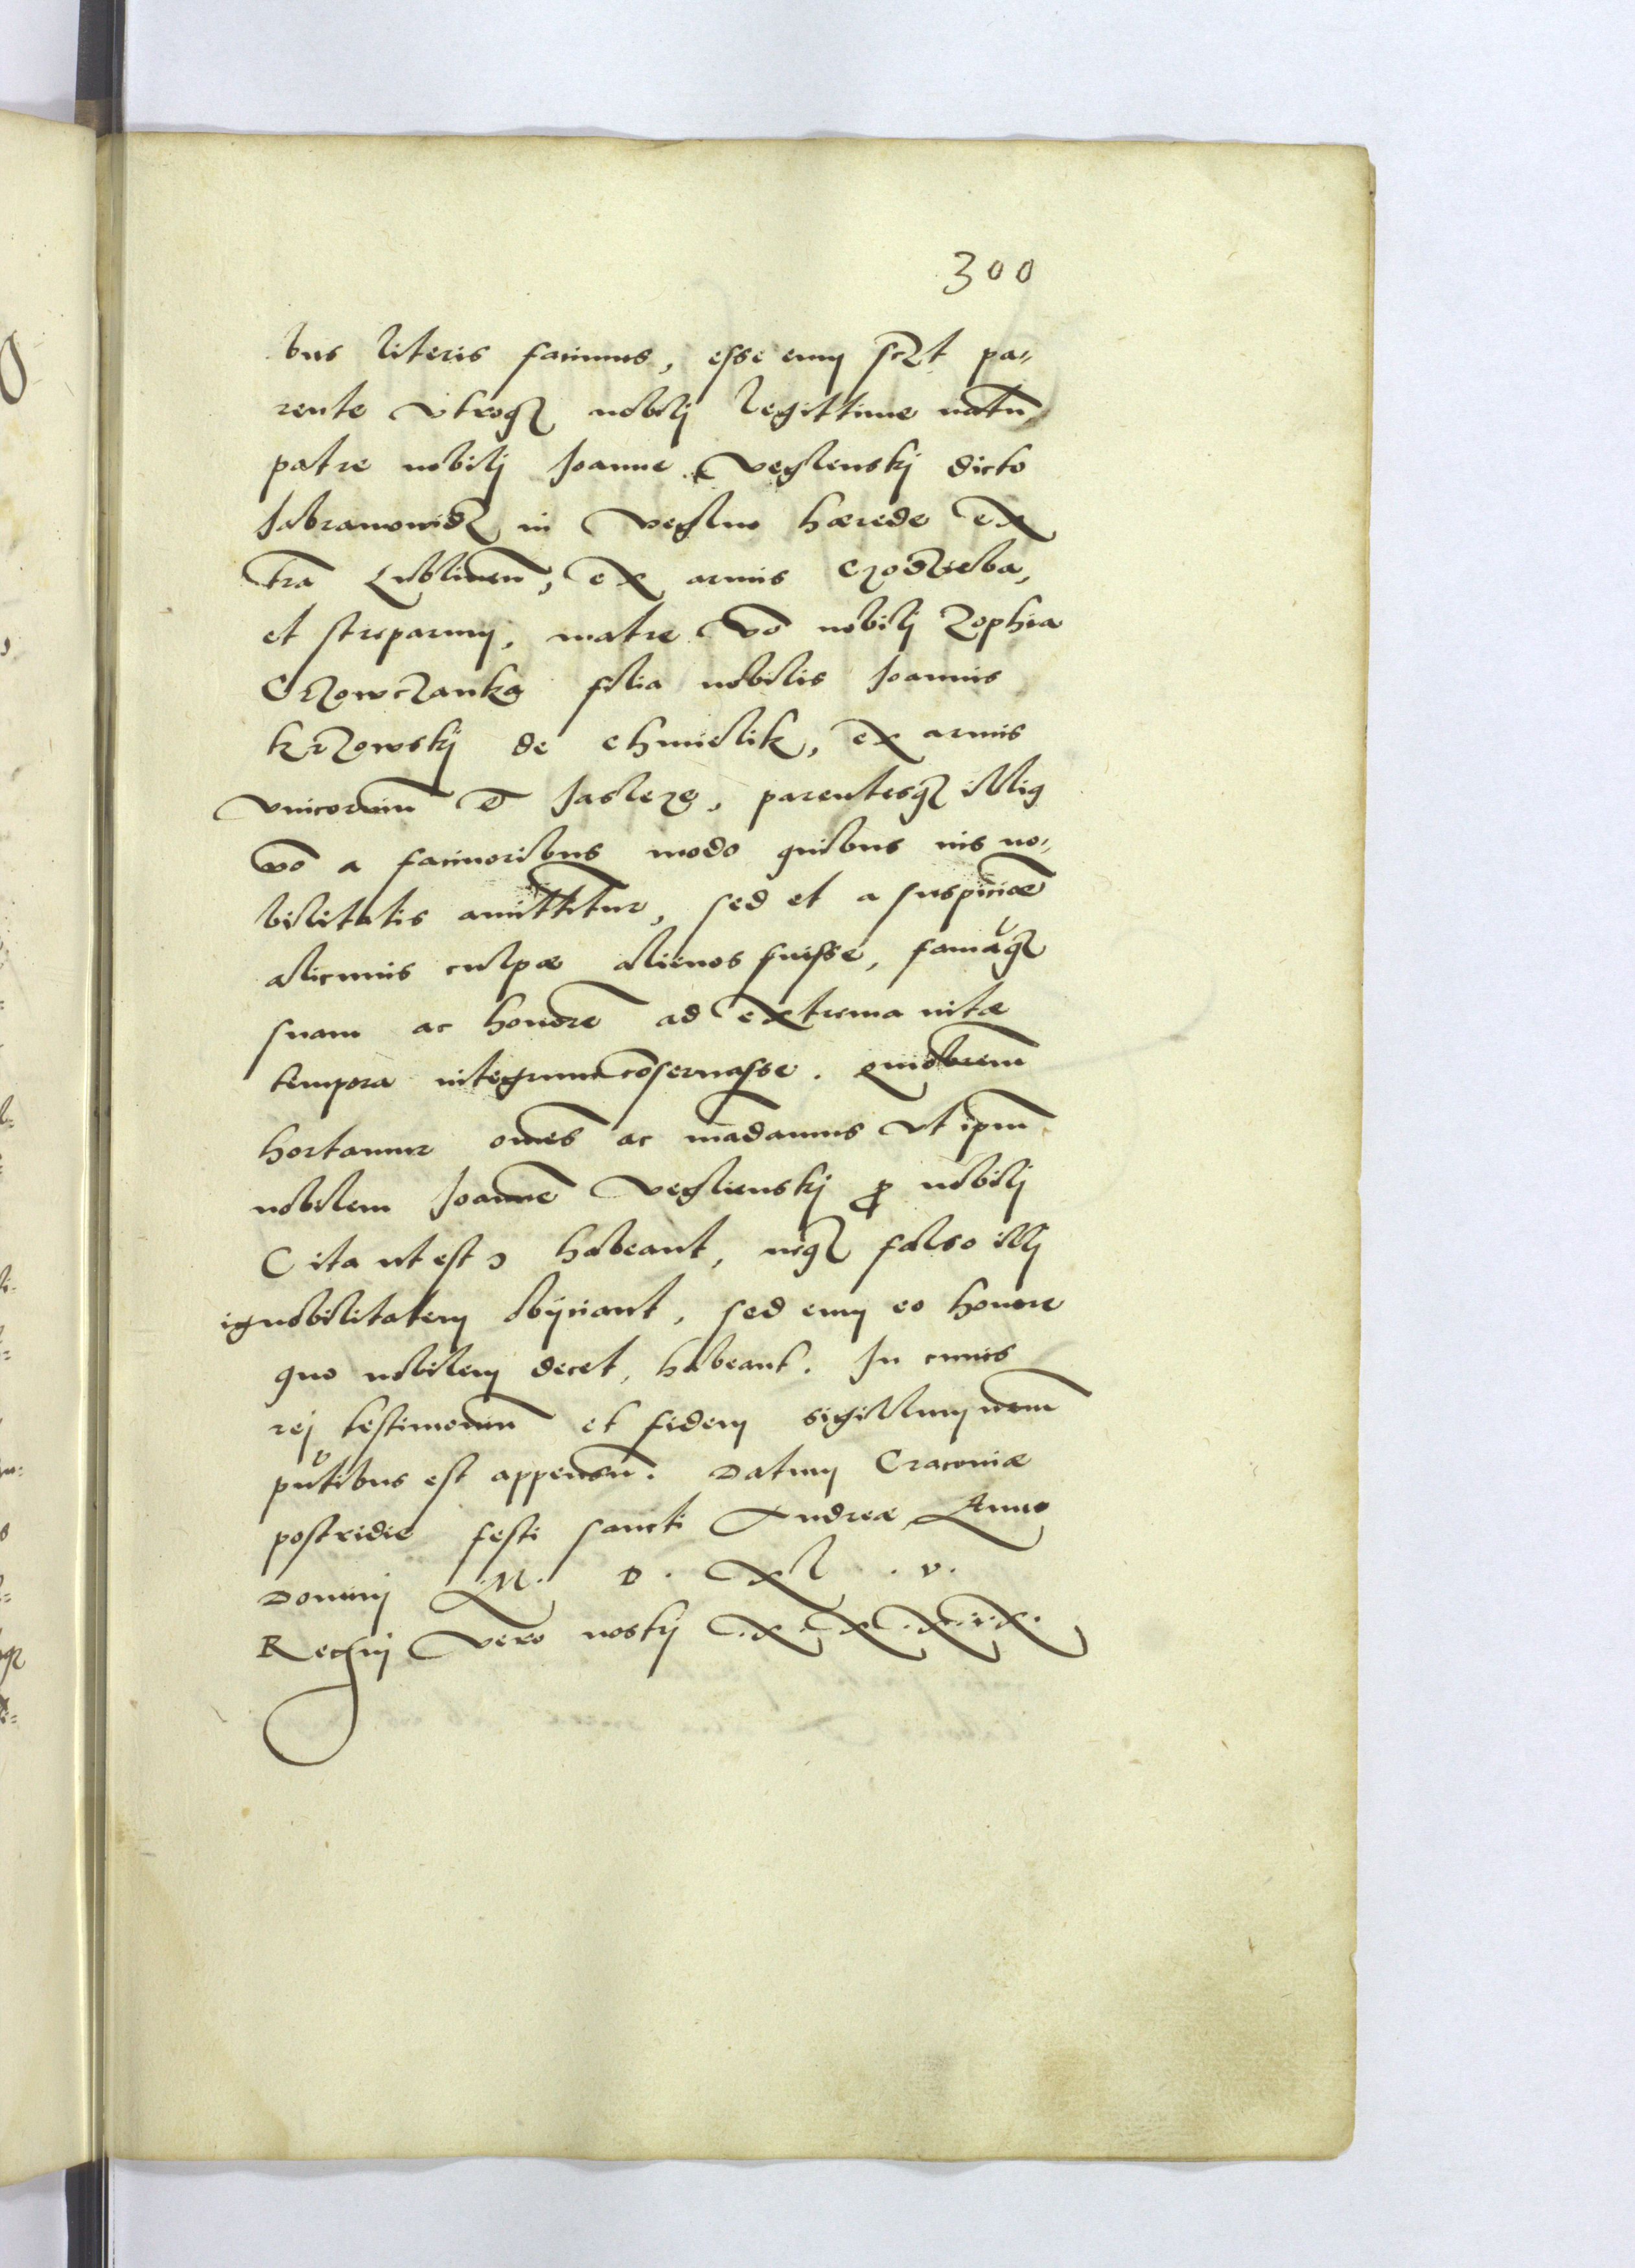 300
bus literis facimus, esse eum scZt pa⸗
rente vtroqȝ nobilj legittime natũ,
patre nobilj Joanne Veglenskj dicto
in Veglno hærede ex
tra Lublineñ, ex armis CzodZieba,
et streparum, matre vo nobilj Zophia
CrZowcZanka filia nobilis Joannis
krZowskj de chmielik, ex armis
vnicornũ et Jaslerg, parentesqȝ illig
vo a facinoribus modo quibus ius no⸗
bilitatis amittitur, sed et a suspicioe
alicuius culpæ alienos fuisse, famāqȝ
suam ac honorē ad extrema uitæ
tempora integrum cõseruasse. quiobrem
hortamur omēs ac mādamus vt ipm
nobilem Joannē Veglienskj ꝓ nobilj
( ita ut est ) habeant, neqȝ falso illj
ignobilitatem obijciant, sed eum eo honore
quo nobilem decet, habeant. In cuius
rej testimoniũ et fidem sigillum nrm
pñtibus est appensũ. Datum Cracoviæ
postridie festi sancti Andreæ Anno
Dominj M. D. Xl. v.
Regnj vero noskj .x.x.x.i.x.